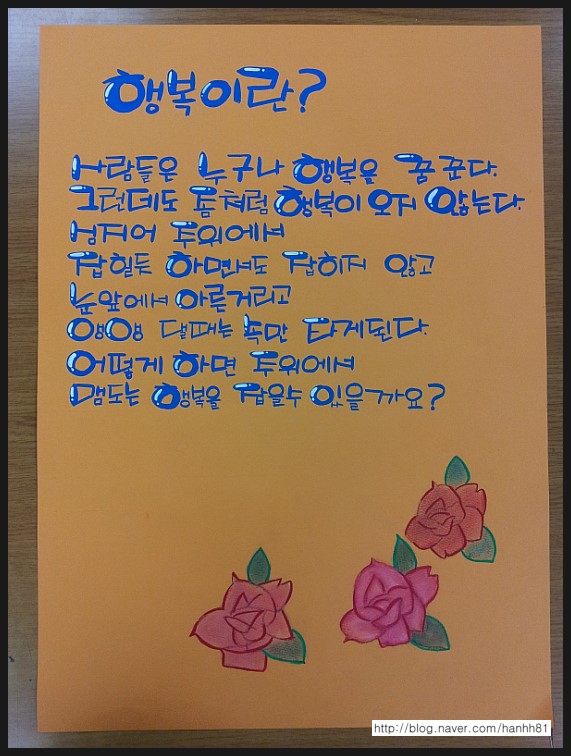 행복이란?
사람들은 누구나 행복을 꿈꾼다.
그런데도 좀처럼 행복이 오지 않는다.
심지어 주위에서
잡힐듯 하면서도 잡히지 않고
눈앞에서 아른거리고
앵앵 댈때는 속만 타게된다.
어떻게 하면 주위에서
맴도는 행복을 잡을수 있을까요?
http://blog.naver.com/hanhh81